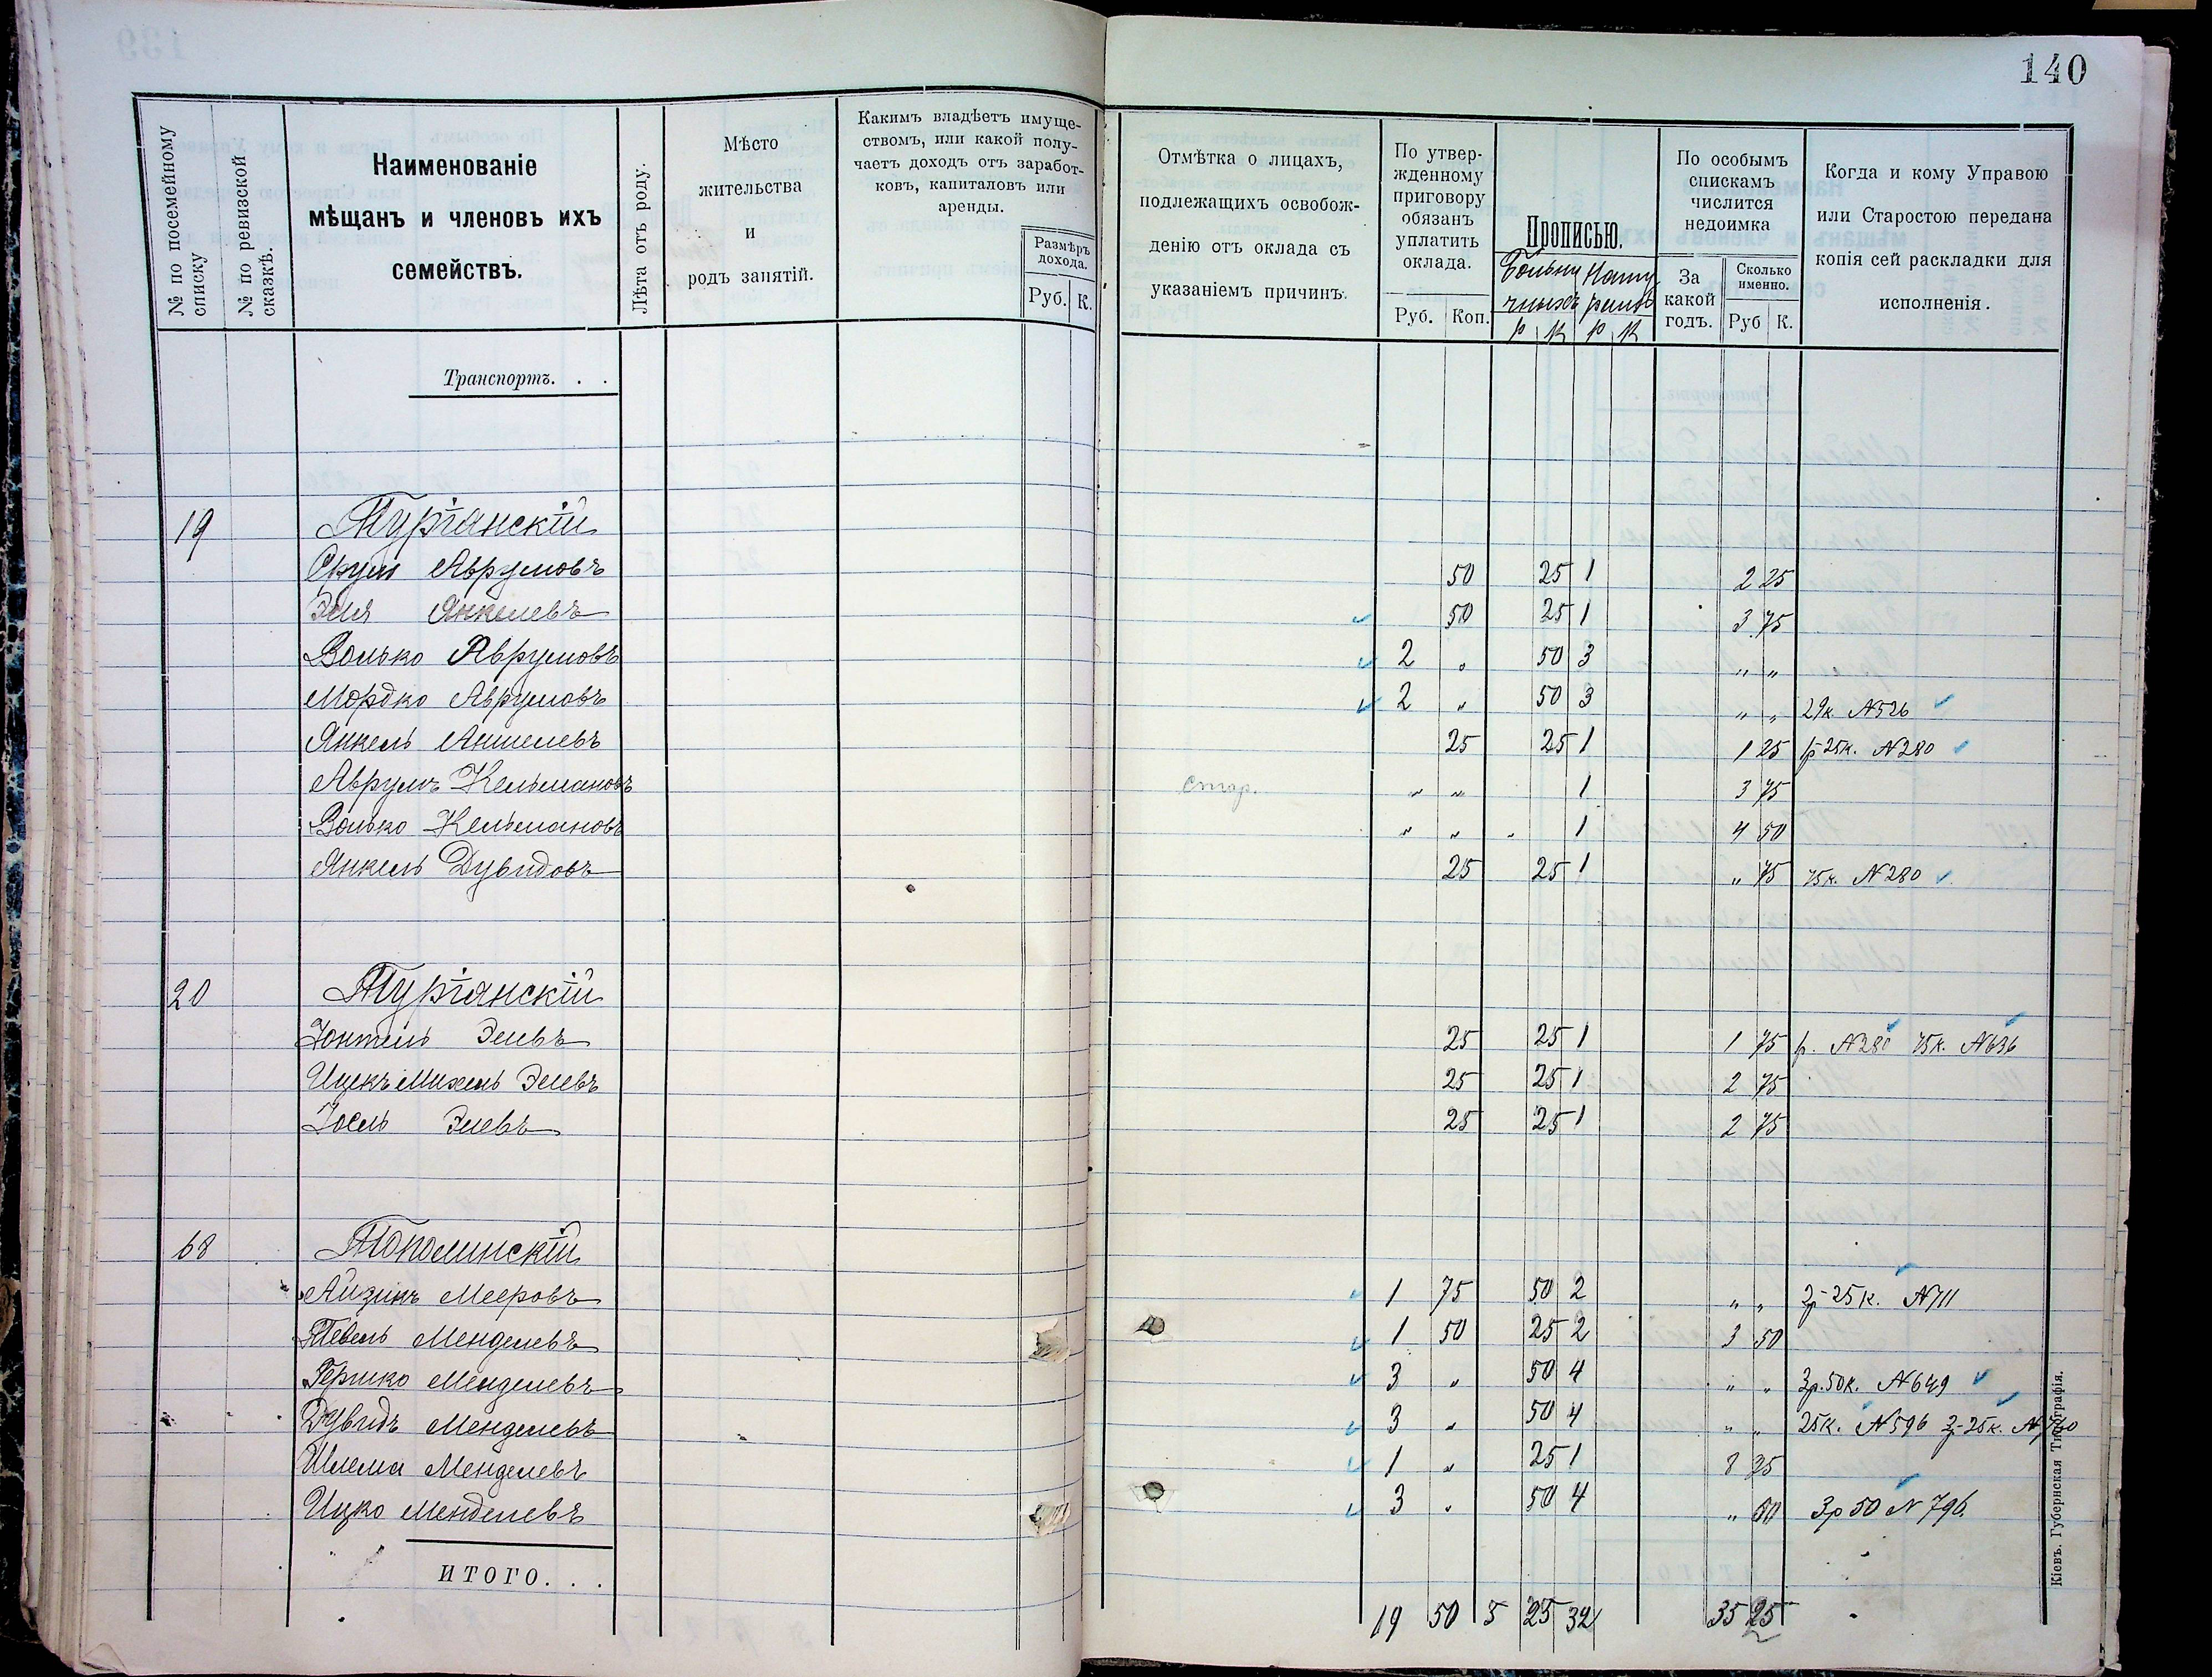 140
№ по посемейному списку
№ по ревизской сказкѣ.
Наименованіе мѣщанъ и членовъ ихъ семействъ.
Лѣта отъ роду.
Мѣсто жительства и родъ занятій.
Какимъ владѣетъ имуще-
ствомъ, или какой полу-
чаетъ доходъ отъ заработ-
ковъ, капиталовъ или
аренды.
Размѣръ дохода.
Руб. К.
Отмѣтка о лицахъ,
подлежащихъ освобож-
денію отъ оклада съ
указаніемъ причинъ.
По утвер-
жденному
приговору
обязанъ
уплатить
оклада.
Руб. Коп.
Прописью.
Больни Нату
чныхъ ральн
р к р к
По особымъ
спискамъ
числится
недоимка
За какой годъ.
Сколько именно.
Руб К.
Когда и кому Управою
или Старостою передана
копія сей раскладки для
исполненія.
Транспортъ. . .
19 Турiанскiй
Срум Аврумовъ 50 25 1 2 25
Эля Янкелевъ 50 25 1 3 75
Волько Аврумовъ 2 " 50 3 " "
Мордко Аврумовъ 2 " 50 3 " " 29к №526
Янкель Аншелевъ 25 25 1 1 25 1р 25к. №280
Аврумъ Кельмановъ стар. " " 1 3 75
Волько Кельмановъ " " " 1 4 50
Янкель Дувидовъ 25 25 1 " 75 75к. №280
20 Турiанскiй
Іонтель Элевъ 25 25 1 1 75 р. №280 75к. №636
Ицекъ Михель Элевъ 25 25 1 2 75
Іосль Элевъ 25 25 1 2 75
68 Тополинскiй
Айзикъ Мееровъ 1 75 50 2 " " 2р-25к. №711
Тевель Менделевъ 1 50 25 2 3 50
Гершко Менделевъ 3 " 50 4 " " 3р.50к. №649
Дувидъ Менделевъ 3 " 50 4 " " 25к. №596 3-25к.
Шлема Менделевъ 1 " 25 1 8 25
Ицко Менделевъ 3 " 50 4 " 50 3р 50 № 796
ИТОГО. . .
19 50 5 25 32 35 25
Кіевъ. Губернская Типографія.